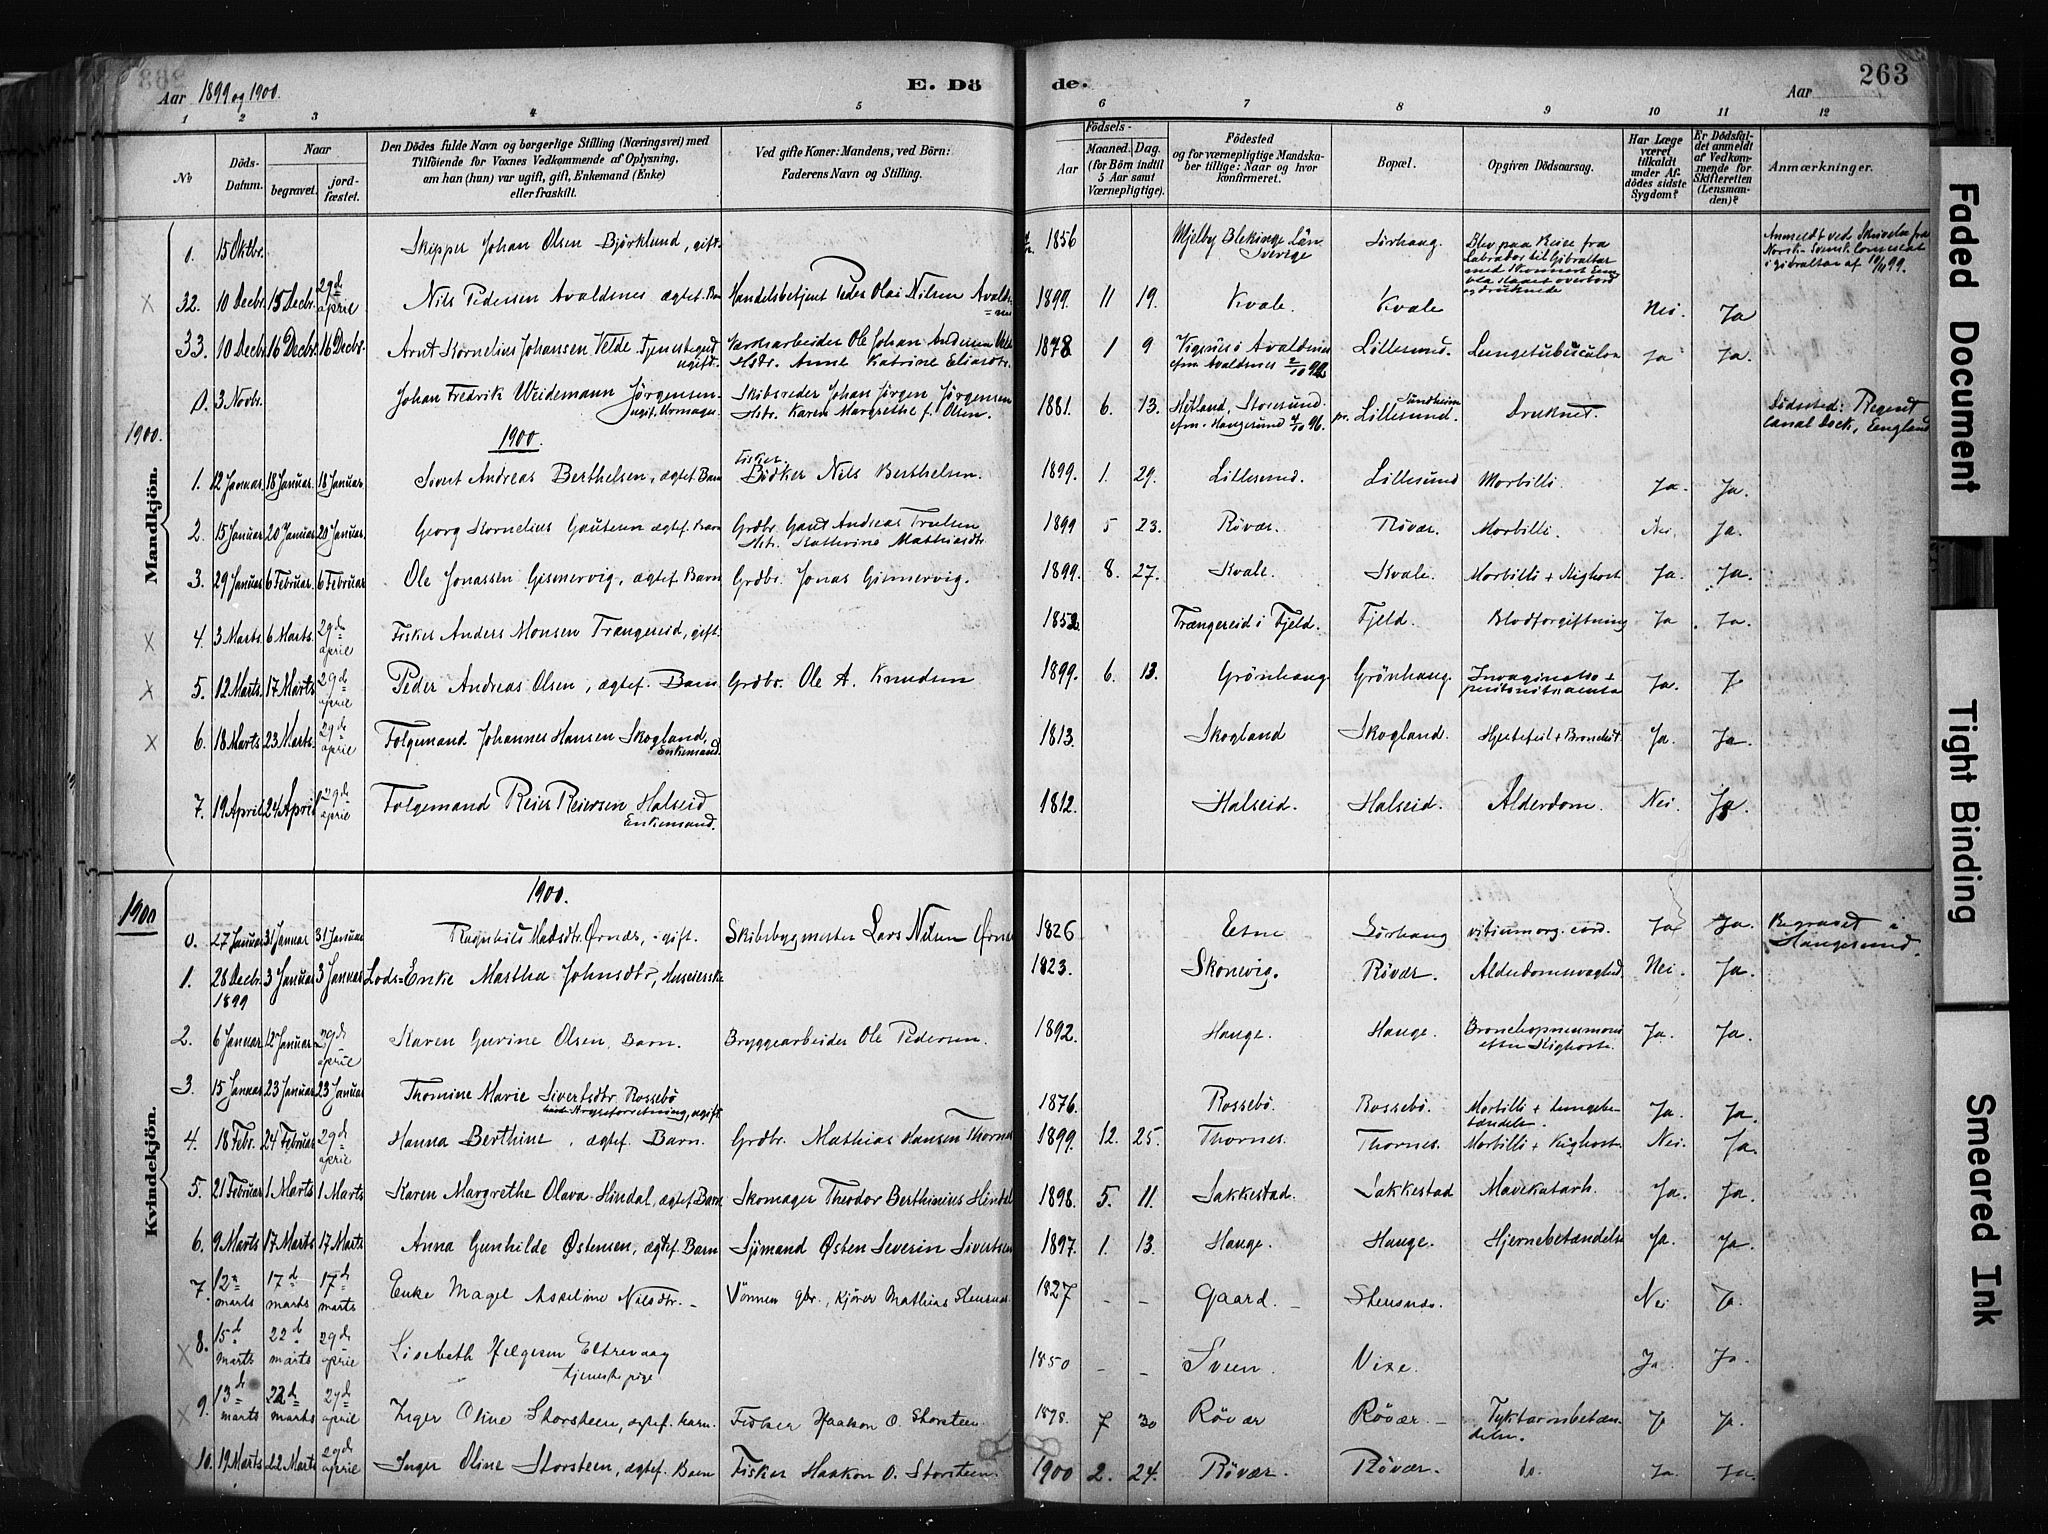 263
Aar 1899 og 1900.
E. Dö
de.
Aar
1 2 3 4 5 6 7 8 9 10 11 12
No
Döds-Datum.
Naar
begravet.
jord-fæstet.
Den Dödes fulde Navn og borgerlige Stilling (Næringsvei) med
Tilföiende for Voxnes Vedkommende af Oplysning,
om han (hun) var ugift, gift, Enkemand (Enke)
eller fraskilt.
Ved gifte Koner: Mandens, ved Börn:
Faderens Navn og Stilling.
Födsels-
Aar
Maaned. Dag.
(for Börn indtil
5 Aar samt
Værnepligtige).
Födested
og for værnepligtige Mandska-
ber tillige: Naar og hvor
konfirmeret.
Bopæl.
Opgiven Dödsaarsag.
Har Læge
været
tilkaldt
under Af-
dödes sidste
Sygdom?
Er Dödsfal-
det anmeldt
af Vedkom-
mende for
Skifteretten
(Lensman-
den)?
Anmærkninger.
Mandkjön.
0. 15 Oktbr. Skipper Johan Olsen Björklund, gift. 1856 Mjelby Blekinge Län Sverige Sörhaug. Blev paa Reise fra Labrador til Gibraltar med Skonnert slaaet overbord og druknede Anmeldt ved Skrivelse fra Norsk-Svensk Consulat i Gibraltar af 10/11 99.
32. 10 Decbr. 15 Decbr. 29de april Nils Pedersen Avaldsnes ægtef. Barn Handelsbetjent Peder Olai Nilsen Avaldsnes 1899. 11 19. Kvale. Kvale Nei. Ja
33. 10 Decbr. 16 Decbr. 16 Decbr. Arnt Kornelius Johansen Velde Tjenestegut ugift. Værdsarbeider Ole Johan Andersen Hstr. Anne Katrine Eliasdtr. 1878 1 9 i Avaldsnes cfm. Avaldsnes Lillesund. Lungetuberculose Ja Ja.
0. 3 Novbr. Johan Fredrik Weidemann Jörgensen ugift. Skibsreder Johan Jörgen Jörgensen Hstr. Karen Margrethe f. Olsen. 1881. 6. 13. Hetland, Storesund. cfm. Haugesund 4/10 96. Sundheim pr. Lillesund. Druknet. Dödssted: Regent Canal Dock, England
1900.
1900.
1. 12 Januar. 18 Januar. 18 Januar. Sivert Andreas Berthelsen, ægtef Barn Fisker. Bödker Nils Berthelsen. 1899. 1. 29. Lillesund. Lillesund Morbilli Ja. Ja.
2. 15 Januar 20 Januar 20 Januar. Georg Kornelius Gautesen ægtef. Barn Grdbr. Gaut Andreas Trulsen Hstr. Kathrine Mathiasdtr. 1899 5 23. Rövær. Rövær. Morbilli. Nei. Ja.
3. 29 Januar 6 Februar 6 Februar Ole Jonassen Gismervig, ægtef. Barn Grdbr. Jonas Gismervig. 1899. 8. 27. Kvale. Kvale. Morbilli + Kighoste Ja. Ja.
4. 3 Marts. 6 Marts. 29de april Fisker Anders Monsen Trængereid, gift. 1852 Trængereid i Fjeld. Fjeld. Blodforgiftning Ja Ja.
5. 12 Marts. 17 Marts 29de april Peder Andreas Olsen, ægtef. Barn Grdbr. Ole A. Knudsen 1899. 6. 13. Grönhaug Grönhaug. Invaginatio + peritonitis acuta Ja. J
6. 18 Marts 23 Marts. 29de april Folgemand Johannes Hansen Skogland, Enkemand. 1813. Skogland Skogland. Hjertefeil + Bronchit Ja. Ja
7. 19 April 24 April 29de aprie Folgemand Reier Reiersen Halseid Enkemand. 1812. Halseid. Halseid. Alderdom. Nei. Ja.
1900
Kvindekjön.
1900.
0. 27 Januar 31 Januar 31 Januar Ragnhild Madsdtr. Ørnæs, gift. Skibsbygmester Lars Nilsen Ørnes 1826 Etne Sörhaug vitium org. cord. Ja Ja. Begravet i Haugesund.
1. 28 Decbr. 1899 3 Januar 3 Januar Lods-Enke Martha Johnsdtr, Huseierske 1823. Skonevig. Rövær. Alderdomssvaghed Nei. Ja.
2. 6 Januar 12 Januar. 29de aprie Karen Gurine Olsen, Barn. Bryggearbeider Ole Pedersen. 1892. Hauge. Hauge. Bronchopneumoni efter Kighoste. Ja. Ja.
3. 15 Januar 23 Januar 23 Januar Thomine Marie Sivertsdtr. Rossebö ugift 1876. Rossebö. Rossebö. Morbilli + Lungebe-tændelse. Ja. Ja.
4. 18 Febr. 24 Februar 29de aprie Hanna Berthine, ægtef. Barn. Grdbr. Mathias Hansen Thornes 1899. 12. 25. Thornes. Thornes. Morbilli + Kighoste Nei. Ja.
5. 21 Februar 1 Marts 1 Marts Karen Margrethe Olava Hindal, ægtef Barn Skomager Theodor Berthinius Hindal 1898. 5. 11. Sakkestad. Sakkestad Mavekatarh. Ja. Ja.
6. 9 Marts 17 Marts. 17 Marts Anna Gunhilde Østensen, ægtef Barn Sjömand Østen Severin Sivertsen 1897. 1. 13. Hauge. Hauge. Hjernebetændelse Ja. Ja.
7. 12te marts 17d marts 17d marts Enke Magel Asseline Nilsdtr. Mathias Stensnes. 1827 Gaard. Stensnes. Nei J.
8. 15d marts 22d marts 29de aprie Lisebeth Helgesen Eltrevaag tjenestepige 1850 Sveen. Vixe. Ja. Ja.
9. 13d marts 22d marts 29de aprie Inger Oline Storsteen, ægtef. barn. Fisker Haakon O. Storsteen. 1898. 7 30 Rövær Rövær. Tyktarmbetæn-delse. J. J.
10. 19 Marts 22 Marts 29de aprie Inger Oline Storsteen, ægtef. Barn Fisker Haakon O. Storsteen. 1900 2. 24. Rövær. Rövær. do. Ja. Ja.
Faded Document
Tight Binding
Smeared Ink